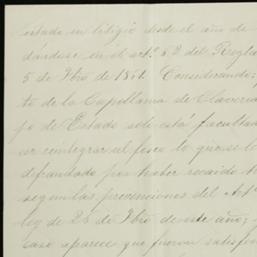 estado en litigio desde el año de
dándose en el art.º 62 del Regla
5 de Fbro de 1861. Considerando:
to de la Capellania de Claveria
po de Estado solo está facultad
ver reintegrar al fisco lo que se l
defraudado por haber recaido
segun las prevenciones del Art
ley de 26 de Fbro de este año;
caso aparece que fueron satisfe